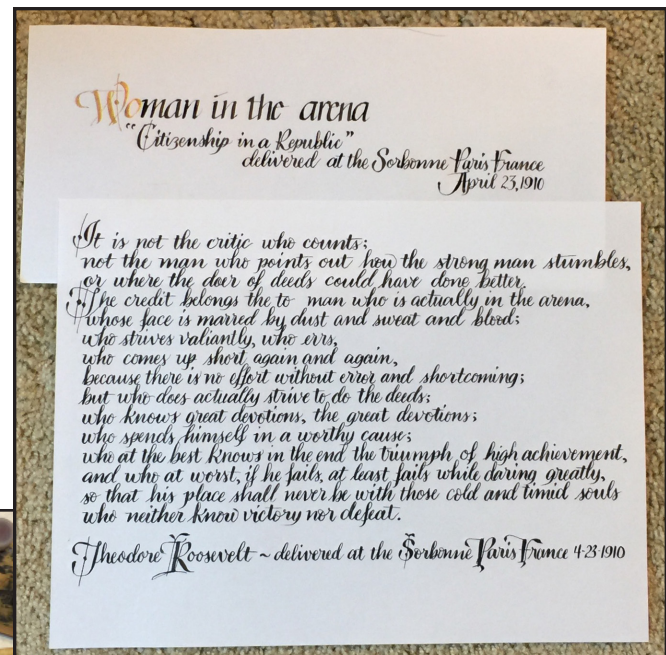 Woman in the arena
"Citizenship in a Republic"
delivered at the Sorbonne Paris France
April 23, 1910
It is not the critic who counts;
not the man who points out how the strong man stumbles,
or where the doer of deeds could have done better.
The credit belongs the to man who is actually in the arena,
whose face is marred by dust and sweat and blood;
who strives valiantly, who errs,
who comes up short again and again,
because there is no effort without error and shortcoming;
but who does actually strive to do the deeds;
who knows great devotions, the great devotions;
who spends himself in a worthy cause;
who at the best knows in the end the triumph of high achievement,
and who at worst, if he fails, at least fails while daring greatly,
so that his place shall never be with those cold and timid souls
who neither know victory nor defeat.
Theodore Roosevelt ~ delivered at the Sorbonne Paris France 4-23-1910